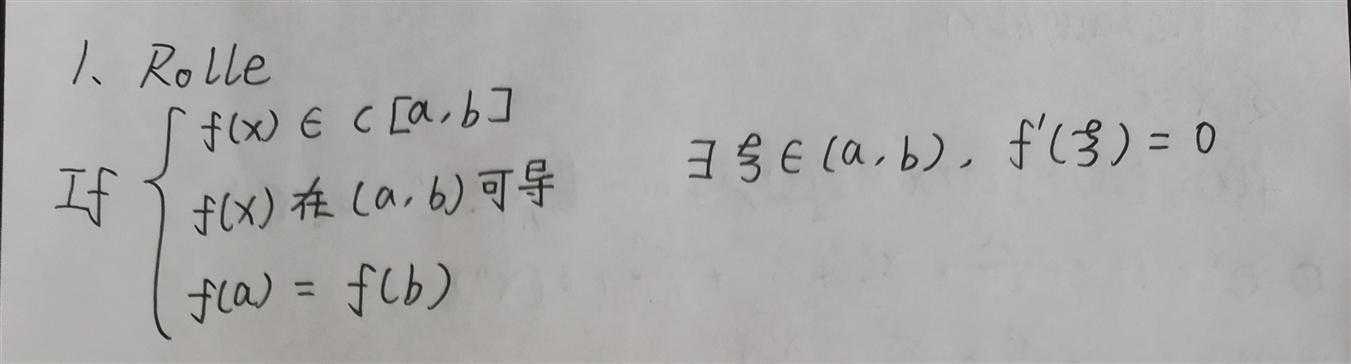 1、Rolle
If { f(x) ∈ C[a,b]
f(x) 在 (a,b) 可导
f(a) = f(b)
∃ ξ ∈ (a,b), f'(ξ) = 0